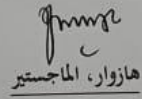 هازوار، الماجستير